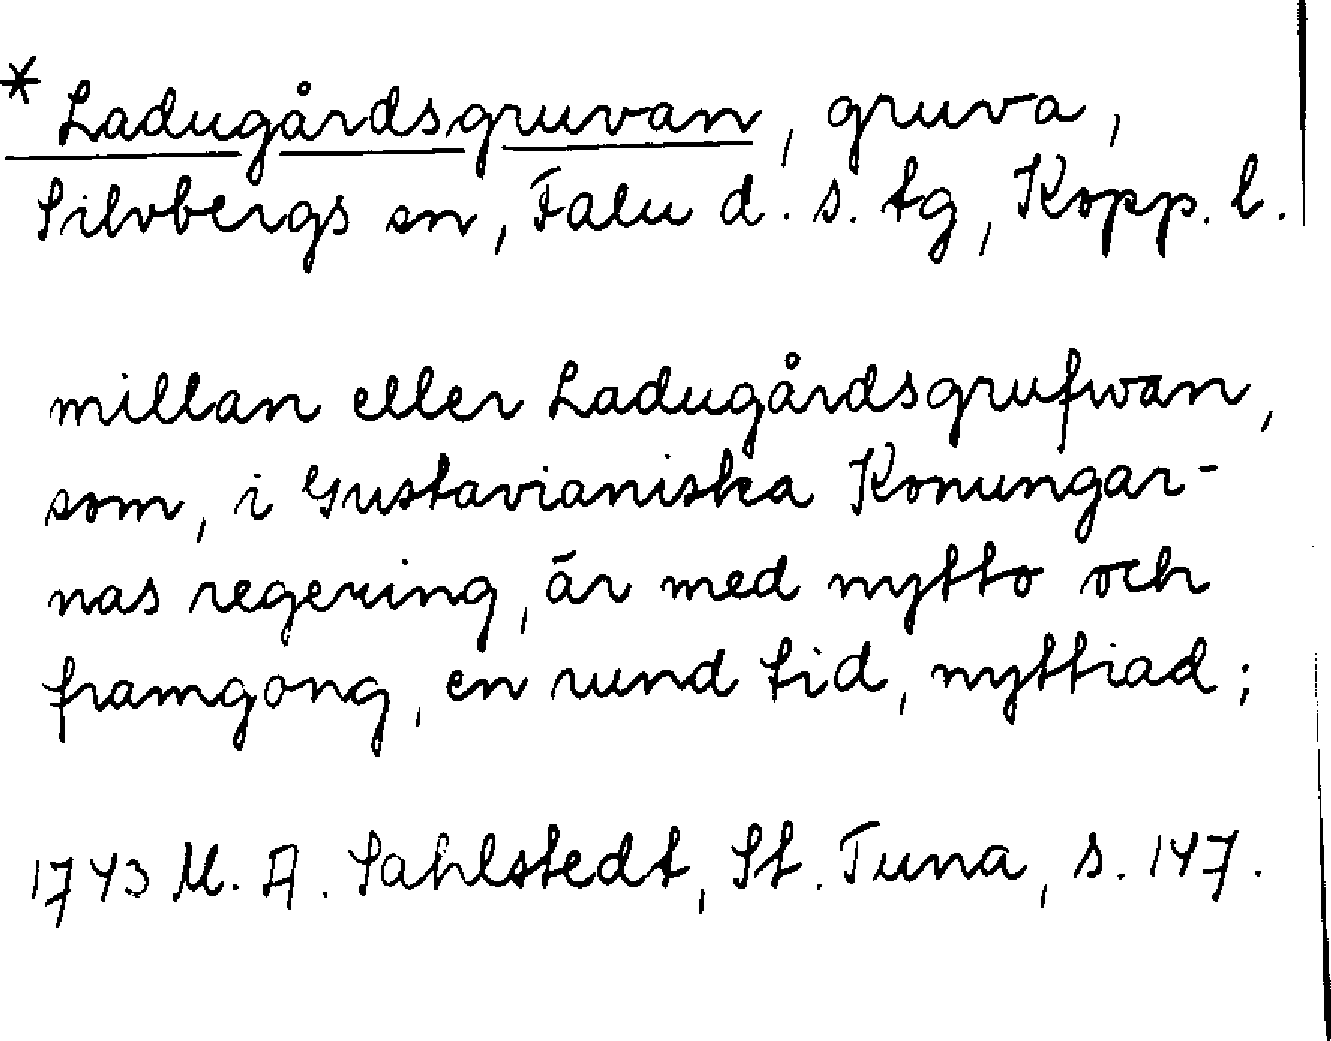 * Ladugårdsgruvan, gruva,
Silvbergs sn, Falu d. s. tg, Kopp. l.
millan eller Ladugårdsgrufwan,
som, i Gustavianiska Konungar-
nas regering, är med nytto och
framgong, en rund tid, nyttiad;
1743 M. A. Sahlstedt, St. Tuna, s. 147.